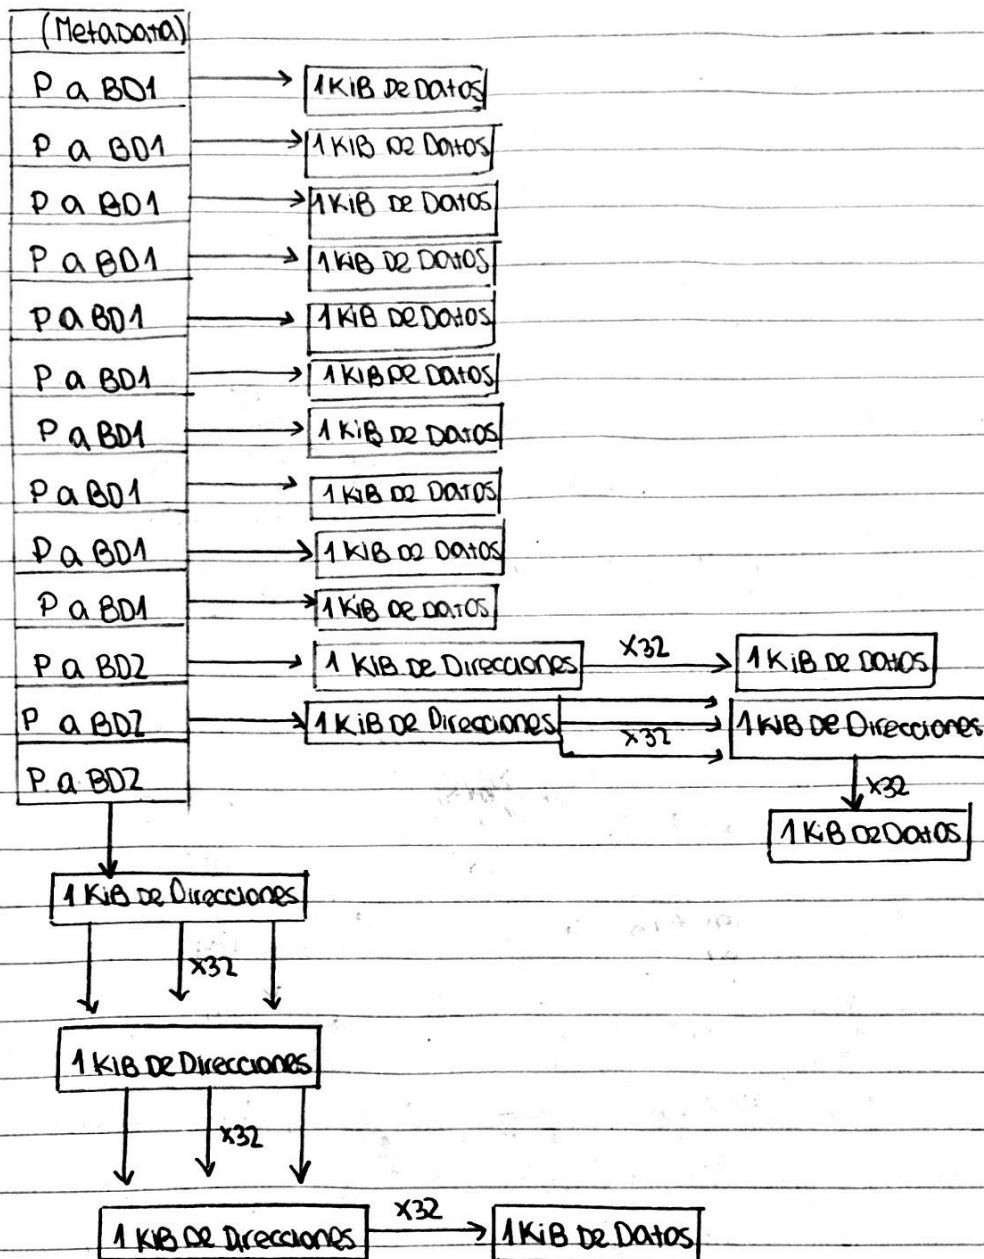 (Metadata)
P a BD1 1 KiB De Datos
P a BD1 1 KiB De Datos
P a BD1 1 KiB De Datos
P a BD1 1 KiB De Datos
P a BD1 1 KiB De Datos
P a BD1 1 KiB De Datos
P a BD1 1 KiB De Datos
P a BD1 1 KiB De Datos
P a BD1 1 KiB De Datos
P a BD1 1 KiB De Datos
P a BD2 1 KiB De Direcciones x32 1 KiB De Datos
P a BD2 1 KiB De Direcciones x32 1 KiB De Direcciones
P a BD2 x32
1 KiB De Datos
1 KiB De Direcciones
x32
1 KiB De Direcciones
x32
1 KiB De Direcciones x32 1 KiB De Datos